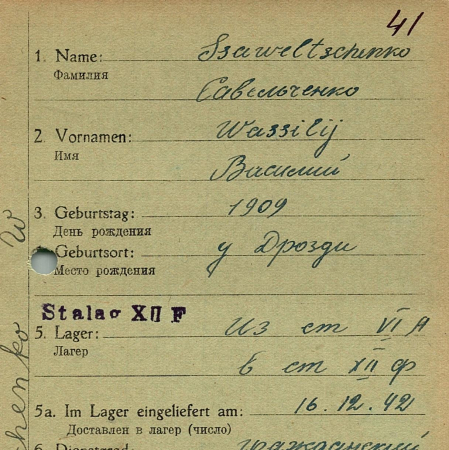 41
1. Name: Ssaweltschenko
Фамилия
Савельченко
2. Vornamen: Wassilij
Имя
Василий
3. Geburtstag: 1909
День рождения
Geburtsort: у Дрозди
Место рождения
Stalag XII F
5. Lager: Из ст VI А
Лагерь
в ст XII Ф
5a. Im Lager eingeliefert am: 16.12.42
Доставлен в лагерь (число)
6. Dienstgrad: гражданский
chenko W